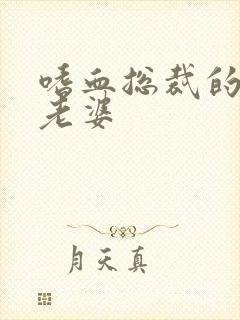 嗜血总裁的
老婆
月天真